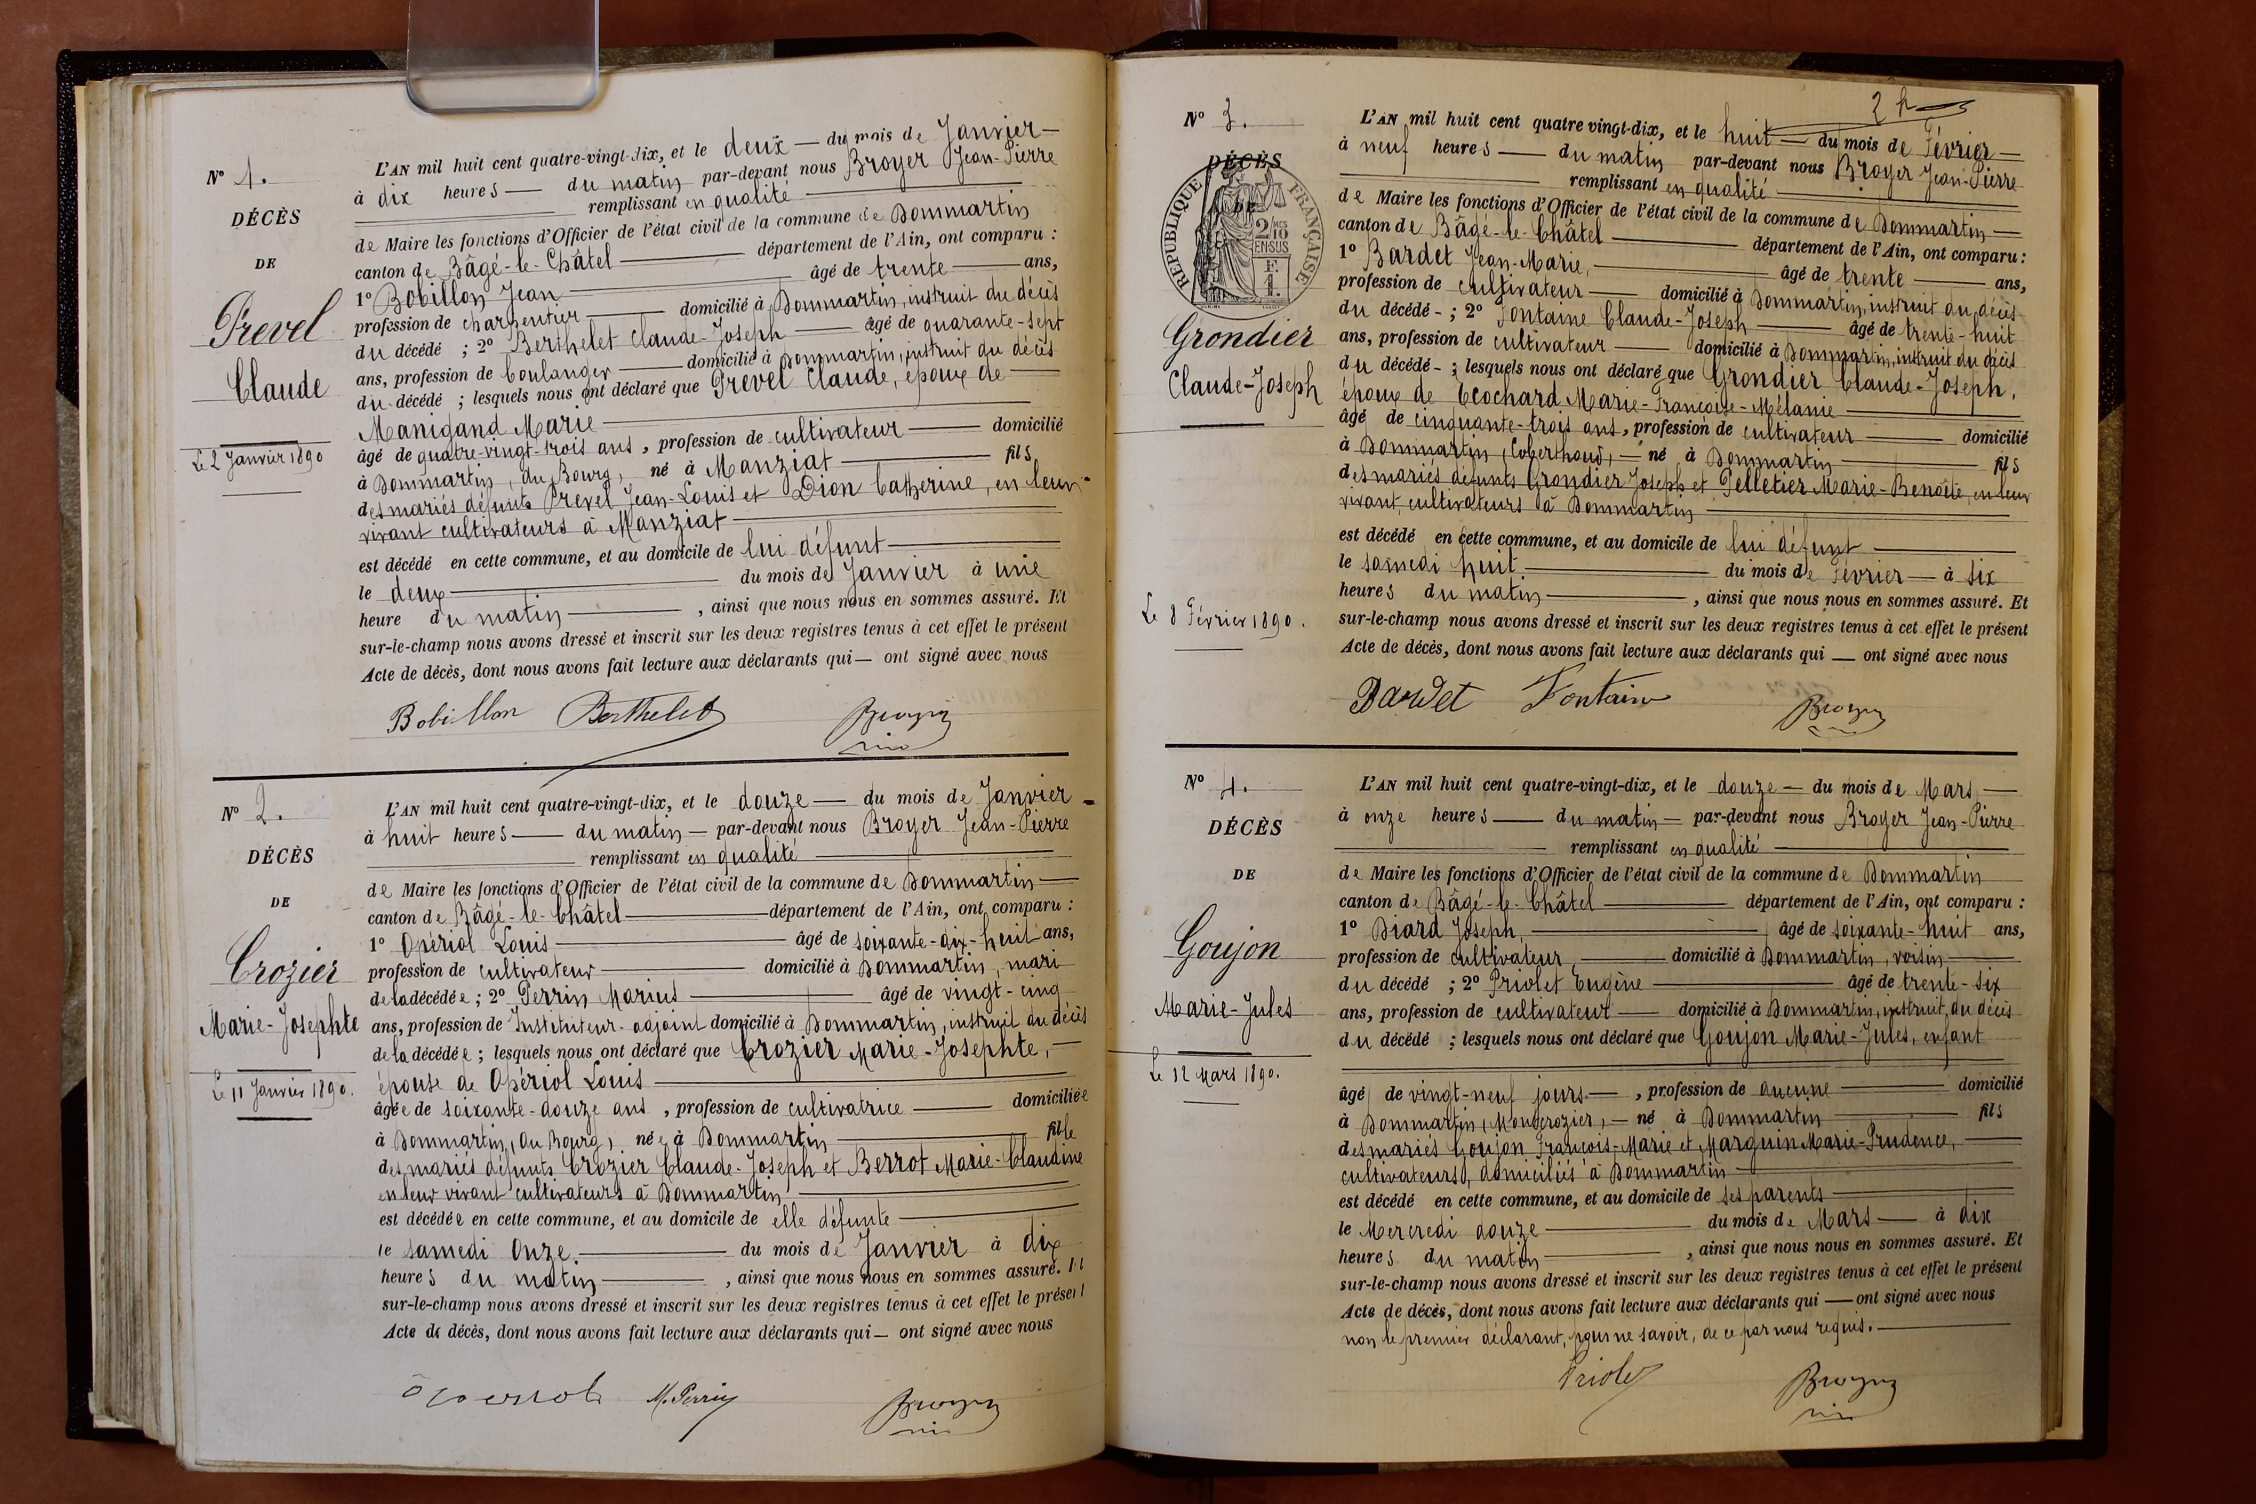 N° 1.
DÉCÈS
DE
Prevel
Claude
Le 2 Janvier 1890
L'AN mil huit cent quatre-vingt-dix, et le deux — du mois de Janvier —
à dix heures — du matin par-devant nous Broyer Jean-Pierre
remplissant en qualité
de Maire les fonctions d'Officier de l'état civil de la commune de Dommartin
canton de Bâgé-le-Châtel — département de l'Ain, ont comparu :
1° Bobillon Jean — âgé de trente — ans,
profession de charpentier — domicilié à Dommartin, instruit du décès
du décédé ; 2° Berthelet Claude-Joseph — âgé de quarante-sept
ans, profession de boulanger — domicilié à Dommartin, instruit du décès
du décédé ; lesquels nous ont déclaré que Prevel Claude, époux de —
Manigand Marie —
âgé de quatre-vingt-trois ans, profession de cultivateur — domicilié
à Dommartin, au Bourg, né à Manziat — fils
des mariés défunts Prevel Jean-Louis et Dion Catherine, en leur
vivant cultivateurs à Manziat —
est décédé en cette commune, et au domicile de lui défunt —
le deux — du mois de Janvier à une
heure du matin — , ainsi que nous nous en sommes assuré. Et
sur-le-champ nous avons dressé et inscrit sur les deux registres tenus à cet effet le présent
Acte de décès, dont nous avons fait lecture aux déclarants qui — ont signé avec nous
Bobillon Berthelet Broyer
N° 2.
DÉCÈS
DE
Crozier
Marie-Josephte
Le 11 Janvier 1890.
L'AN mil huit cent quatre-vingt-dix, et le douze — du mois de Janvier -
à huit heures — du matin — par-devant nous Broyer Jean-Pierre
remplissant en qualité
de Maire les fonctions d'Officier de l'état civil de la commune de Dommartin —
canton de Bâgé-le-Châtel — département de l'Ain, ont comparu :
1° Opériol Louis — âgé de soixante-dix-huit ans,
profession de cultivateur — domicilié à Dommartin, mari
de la décédée ; 2° Perrin Marius — âgé de vingt-cinq
ans, profession de Instituteur-adjoint domicilié à Dommartin, instruit du décès
de la décédée ; lesquels nous ont déclaré que Crozier Marie-Josephte, —
épouse de Opériol Louis —
âgée de soixante-douze ans, profession de cultivatrice — domiciliée
à Dommartin, au Bourg, née à Dommartin — fille
des mariés défunts Crozier Claude-Joseph et Berrot Marie-Claudine
en leur vivant cultivateurs à Dommartin —
est décédée en cette commune, et au domicile de elle défunte —
le samedi onze — du mois de Janvier à dix
heures du matin — , ainsi que nous nous en sommes assuré. Et
sur-le-champ nous avons dressé et inscrit sur les deux registres tenus à cet effet le présent
Acte de décès, dont nous avons fait lecture aux déclarants qui — ont signé avec nous
M. Perrin Broyer
N° 3.
DÉCÈS
DE
RÉPUBLIQUE FRANÇAISE
2/10 MES
EN SUS
F.
1.
Grondier
Claude-Joseph
Le 8 Février 1890.
L'AN mil huit cent quatre vingt-dix, et le huit — du mois de Février —
à neuf heures — du matin par-devant nous Broyer Jean-Pierre
remplissant en qualité
de Maire les fonctions d'Officier de l'état civil de la commune de Dommartin —
canton de Bâgé-le-Châtel — département de l'Ain, ont comparu :
1° Bardet Jean-Marie, — âgé de trente — ans,
profession de cultivateur — domicilié à Dommartin, instruit du décès
du décédé - ; 2° Fontaine Claude-Joseph — âgé de trente-huit
ans, profession de cultivateur — domicilié à Dommartin, instruit du décès
du décédé - ; lesquels nous ont déclaré que Grondier Claude-Joseph,
époux de Cochard Marie-Françoise-Mélanie —
âgé de cinquante-trois ans, profession de cultivateur — domicilié
à Dommartin, (Coberthoud) — né à Dommartin — fils
des mariés défunts Grondier Joseph et Pelletier Marie-Benoîte, en leur
vivant cultivateurs à Dommartin —
est décédé en cette commune, et au domicile de lui défunt —
le samedi huit — du mois de Février — à six
heures du matin — , ainsi que nous nous en sommes assuré. Et
sur-le-champ nous avons dressé et inscrit sur les deux registres tenus à cet effet le présent
Acte de décès, dont nous avons fait lecture aux déclarants qui — ont signé avec nous
Bardet Fontaine Broyer
N° 4.
DÉCÈS
DE
Goujon
Marie-Jules
Le 12 Mars 1890.
L'AN mil huit cent quatre-vingt-dix, et le douze — du mois de Mars —
à onze heures — du matin — par-devant nous Broyer Jean-Pierre
remplissant en qualité
de Maire les fonctions d'Officier de l'état civil de la commune de Dommartin
canton de Bâgé-le-Châtel — département de l'Ain, ont comparu :
1° Biard Joseph, — âgé de soixante-huit ans,
profession de cultivateur, — domicilié à Dommartin, voisin —
du décédé ; 2° Priolet Eugène — âgé de trente-six
ans, profession de cultivateur — domicilié à Dommartin, instruit du décès
du décédé ; lesquels nous ont déclaré que Goujon Marie-Jules, enfant
âgé de vingt-neuf jours — , profession de aucune — domicilié
à Dommartin, (Montcrozier) — né à Dommartin — fils
des mariés Goujon François-Marie et Marguin Marie-Prudence, —
cultivateurs, domiciliés à Dommartin —
est décédé en cette commune, et au domicile de ses parents —
le Mercredi douze — du mois de Mars — à dix
heures du matin — , ainsi que nous nous en sommes assuré. Et
sur-le-champ nous avons dressé et inscrit sur les deux registres tenus à cet effet le présent
Acte de décès, dont nous avons fait lecture aux déclarants qui — ont signé avec nous
non le premier déclarant, pour ne savoir, de ce par nous requis. —
Priolet Broyer